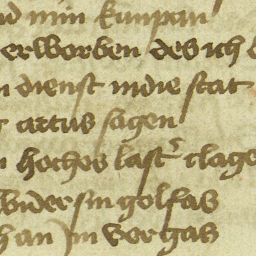 nd min kunpan
erworben des ich
dienst in die stat
artus sagen
hoches last's clage
wider sin golfas
han Jm vergas